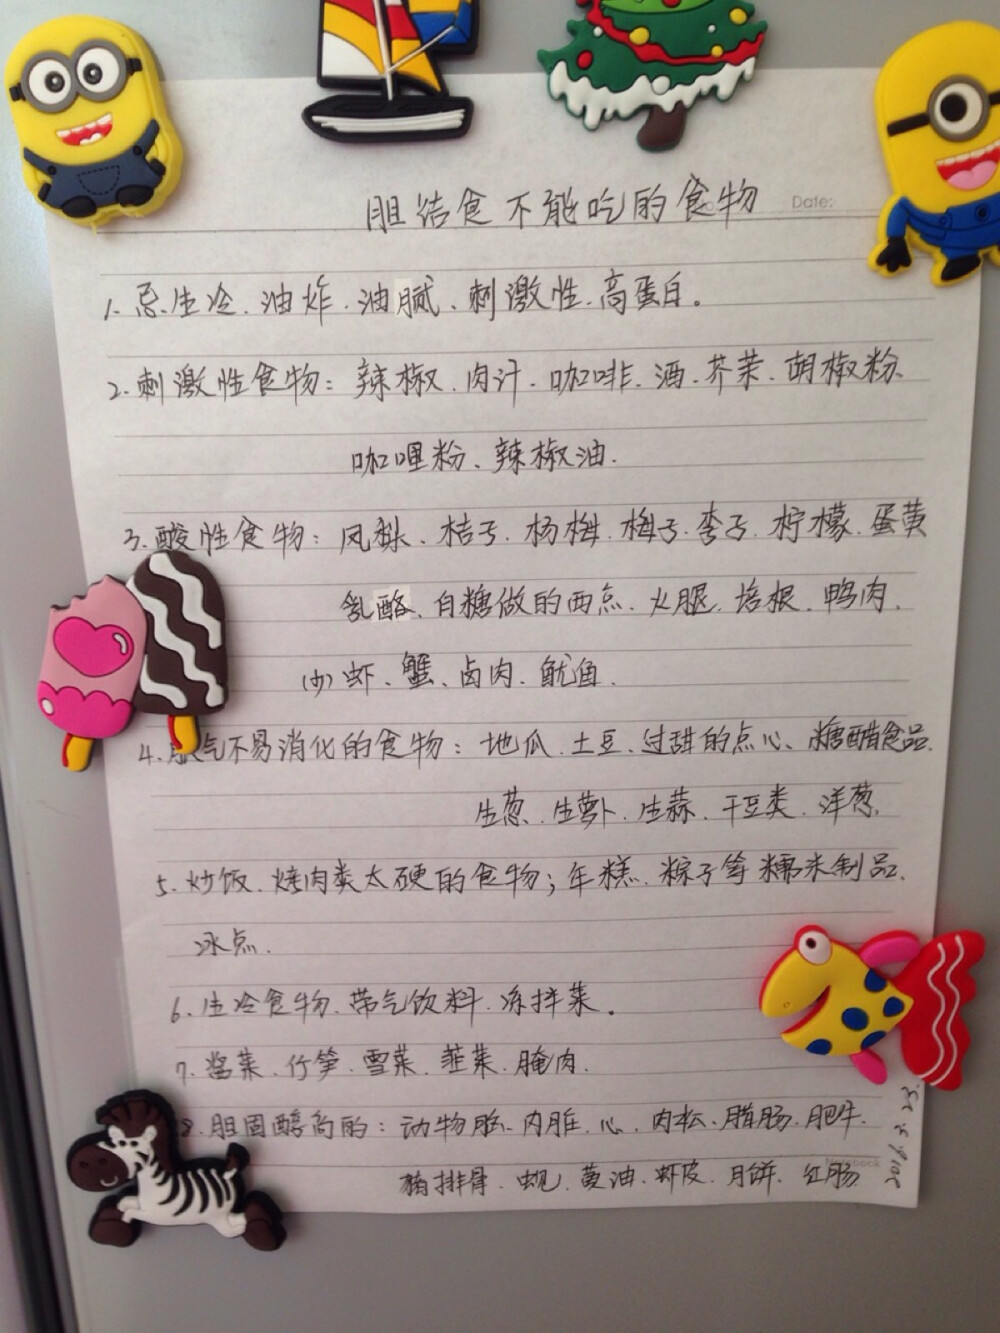 胆结食不能吃的食物 Date:
1. 忌生冷、油炸、油腻、刺激性、高蛋白。
2. 刺激性食物：辣椒、肉汁、咖啡、酒、芥茉、胡椒粉、
咖哩粉、辣椒油.
3. 酸性食物：凤梨、桔子、杨梅、梅子、李子、柠檬、蛋黄
乳酪、白糖做的西点、火腿、培根、鸭肉、
(少)虾、蟹、卤肉、鱿鱼.
4. 胀气不易消化的食物：地瓜、土豆、过甜的点心、糖醋食品、
生葱、生萝卜、生蒜、干豆类、洋葱.
5. 炒饭、烤肉类太硬的食物；年糕、粽子等糯米制品、
冰点.
6. 生冷食物、带气饮料、冻拌菜。
7. 酱菜、竹笋、雪菜、韮菜、腌肉.
8. 胆固醇高的：动物脑、内脏、心、肉松、腊肠、肥牛、
猪排骨、蚬、黄油、虾皮、月饼、红肠
Notebook
2016.3.23.